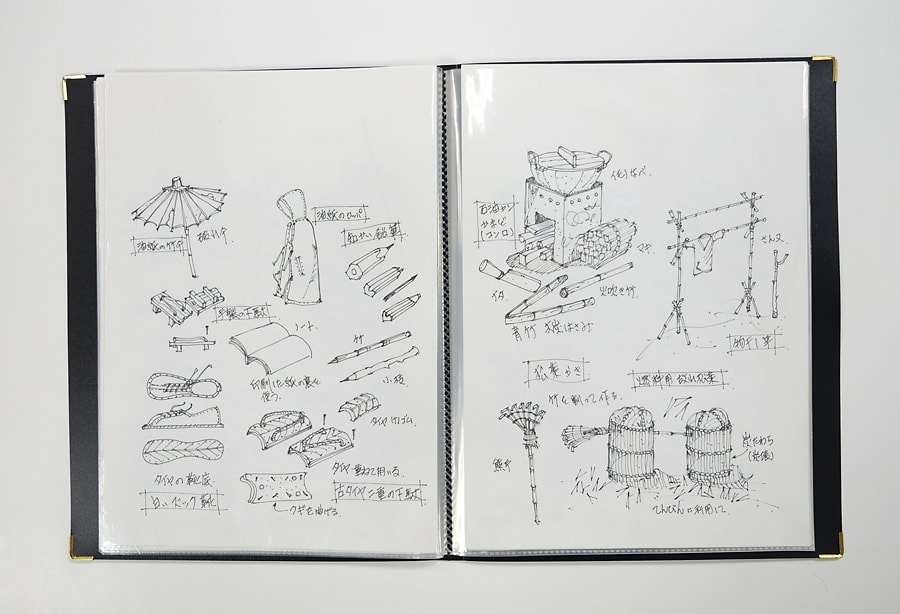 油紙のカッパ
油紙の竹傘
破れ傘
短かい鉛筆
手製の下駄
ノート
竹
印刷した紙の裏を
使う。
小枝
タイヤ切りゴム
タイヤの靴底
白いズック靴
タイヤ重ねて用いる
古タイヤ二重の下駄
クギを曲げる
石油カン
かまど
(コンロ)
マキ
イタ
火吹き竹
青竹 火炭ばさみ
さん又
物干し竿
竹を割って作る
燃料用
熊手
炭だわら
(炭俵)
てんびんに利用して